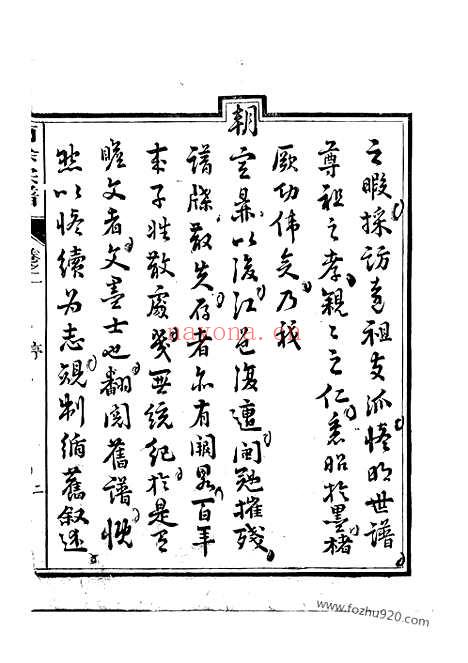 之暇採訪育祖支派修明世譜
尊祖之孝親親之仁悉昭於墨楮
厥功偉矣乃我
朝定鼎以後江邑復遭闖逆摧殘
譜牒散失存者亦有闕畧百年
來子姓散處幾無統紀於是
瞻文者文墨士也翻閱舊譜慨
然以修續為志規制循舊叙述
宗譜
卷之一
序
二
naxona.cn
www.fozhu920.com